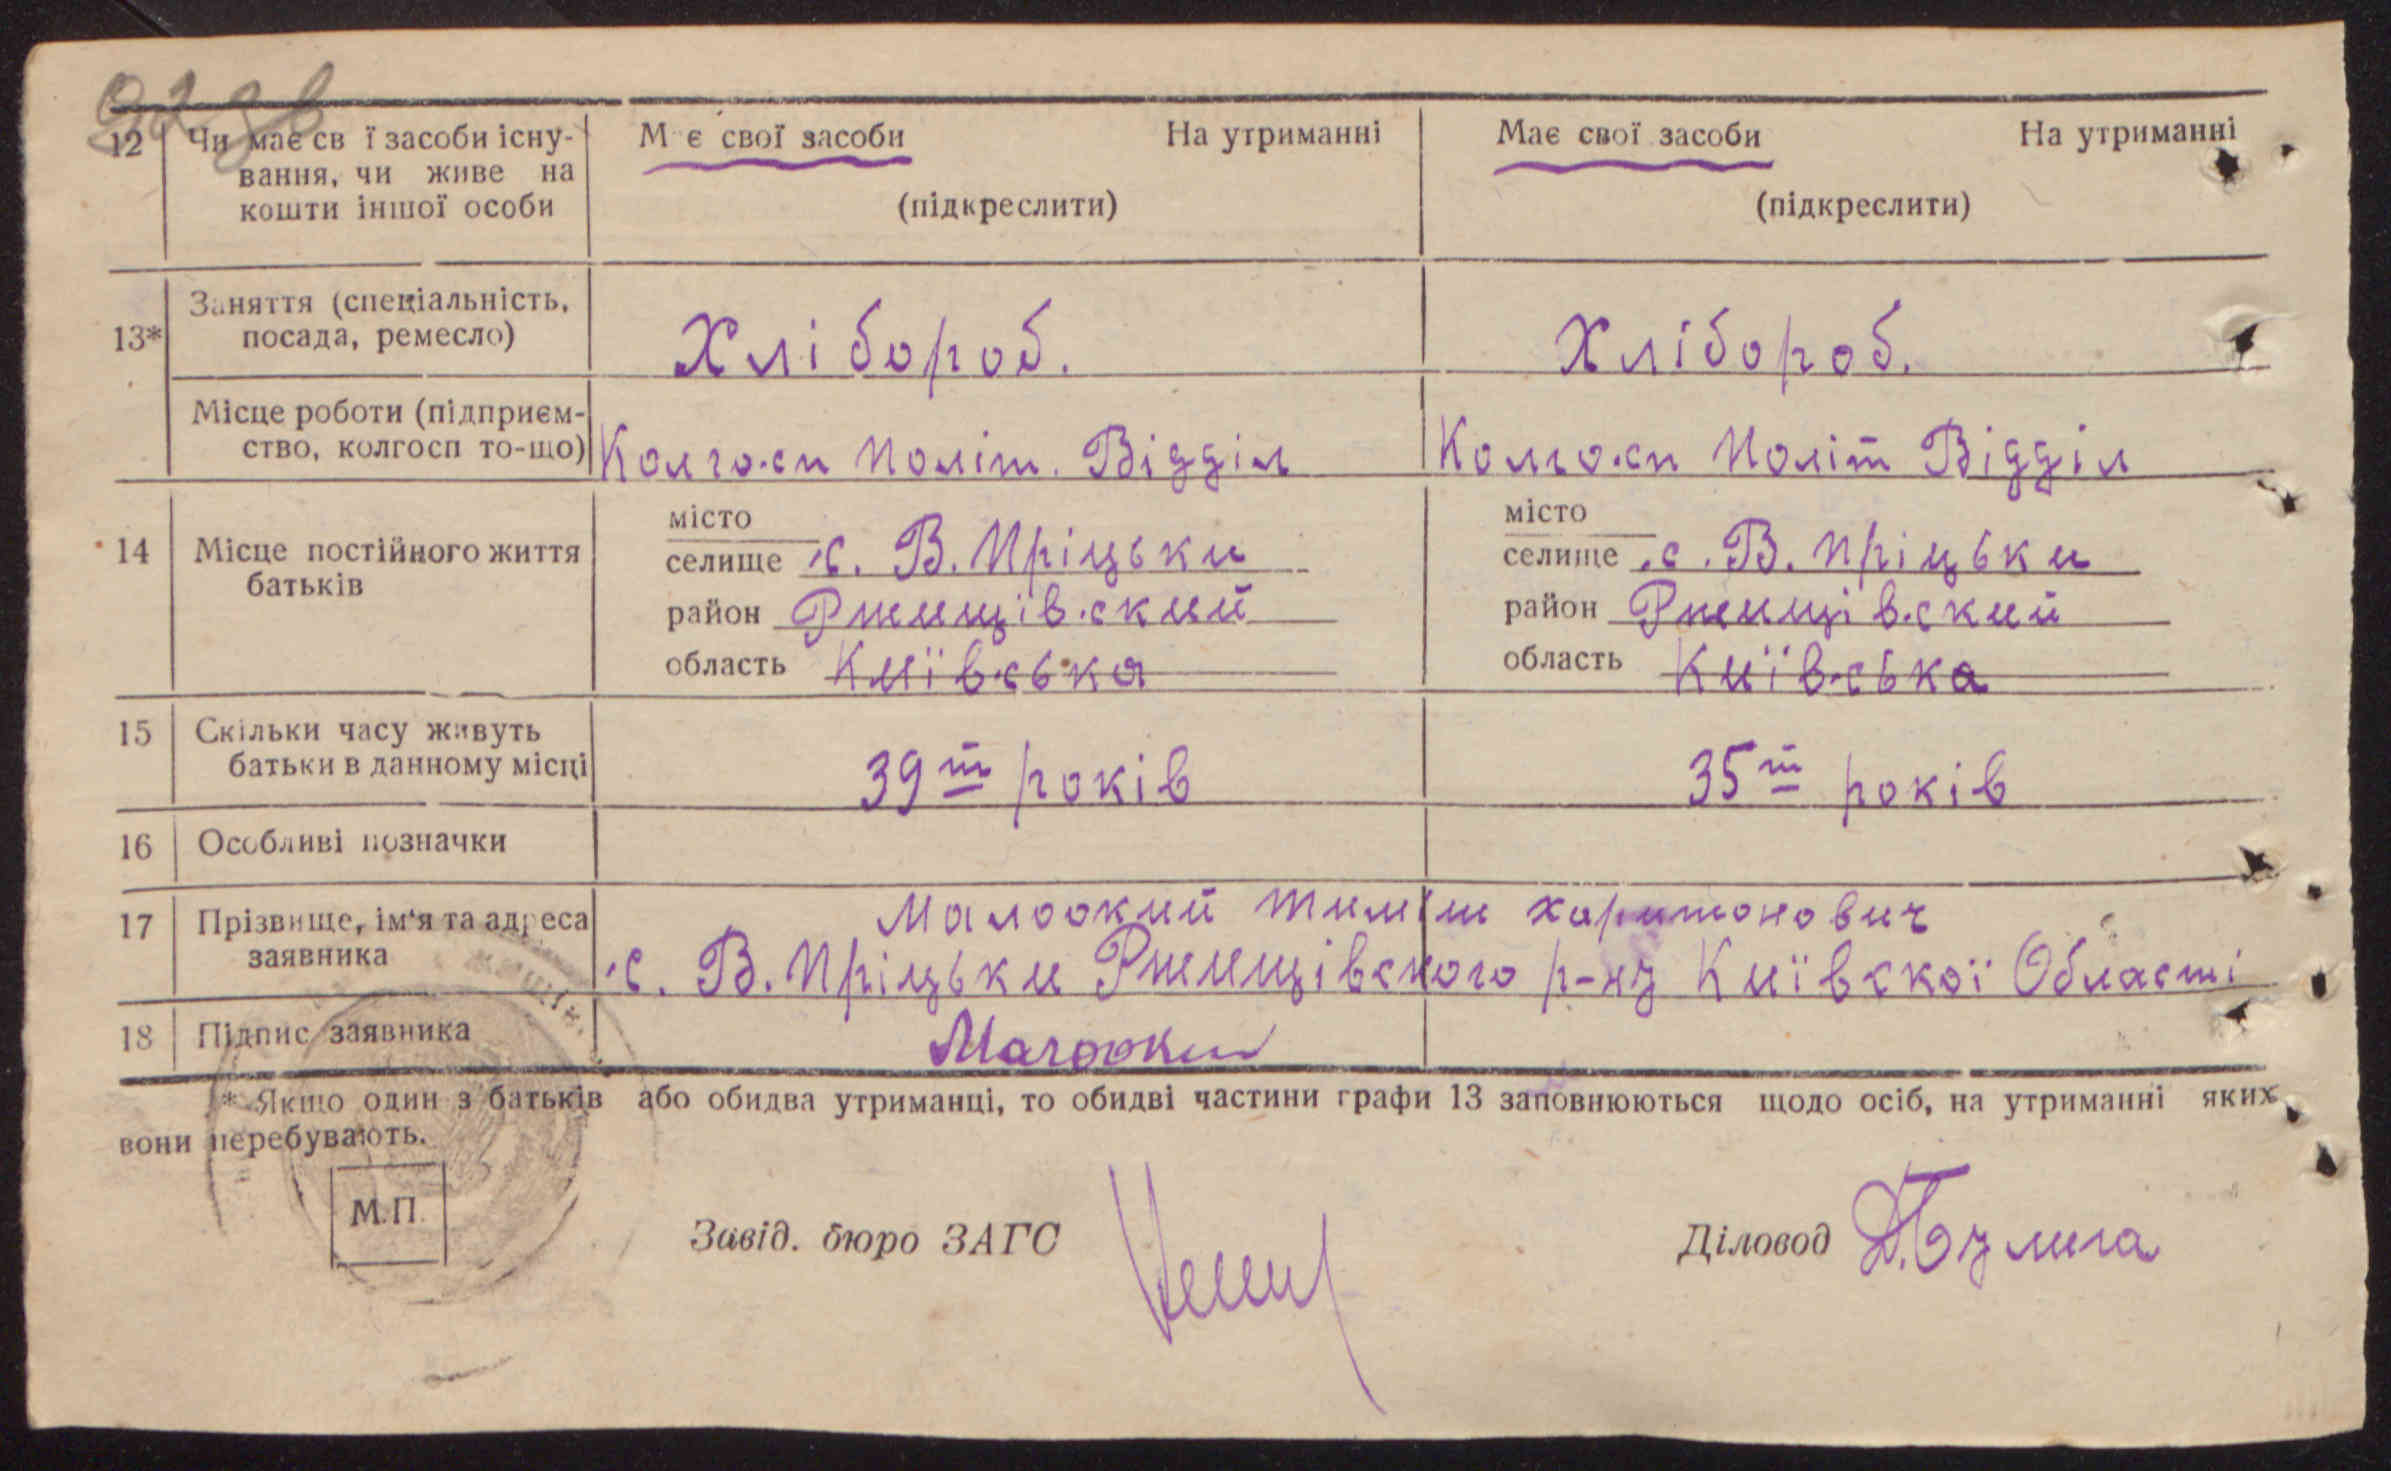 12 Чи має св ї засоби існу-
вання, чи живе на
кошти іншої особи
М є свої засоби На утриманні
(підкреслити)
Має свої засоби На утриманні
(підкреслити)
13* Заняття (спеціальність,
посада, ремесло)
Хлібороб.
Хлібороб.
Місце роботи (підприєм-
ство, колгосп то-що)
Колгосп Політ. Відділ
Колгосп Політ Відділ
14 Місце постійного життя
батьків
місто
селище с. В. Пріцьки
район Ржищівский
область Київська
місто
селище с. В. Пріцьки
район Ржищівский
область Київська
15 Скільки часу живуть
батьки в данному місці
39т років
35т років
16 Особливі позначки
17 Прізвище, ім'я та адреса
заявника
Малоокий Тиміш Харитонович
с. В. Пріцьки Ржищівского р-ну Київскої Області
18 Підпис заявника
Малооки
* Якщо один з батьків або обидва утриманці, то обидві частини графи 13 заповнюються щодо осіб, на утриманні яких
вони перебувають.
М.П.
Завід. бюро ЗАГС
Діловод